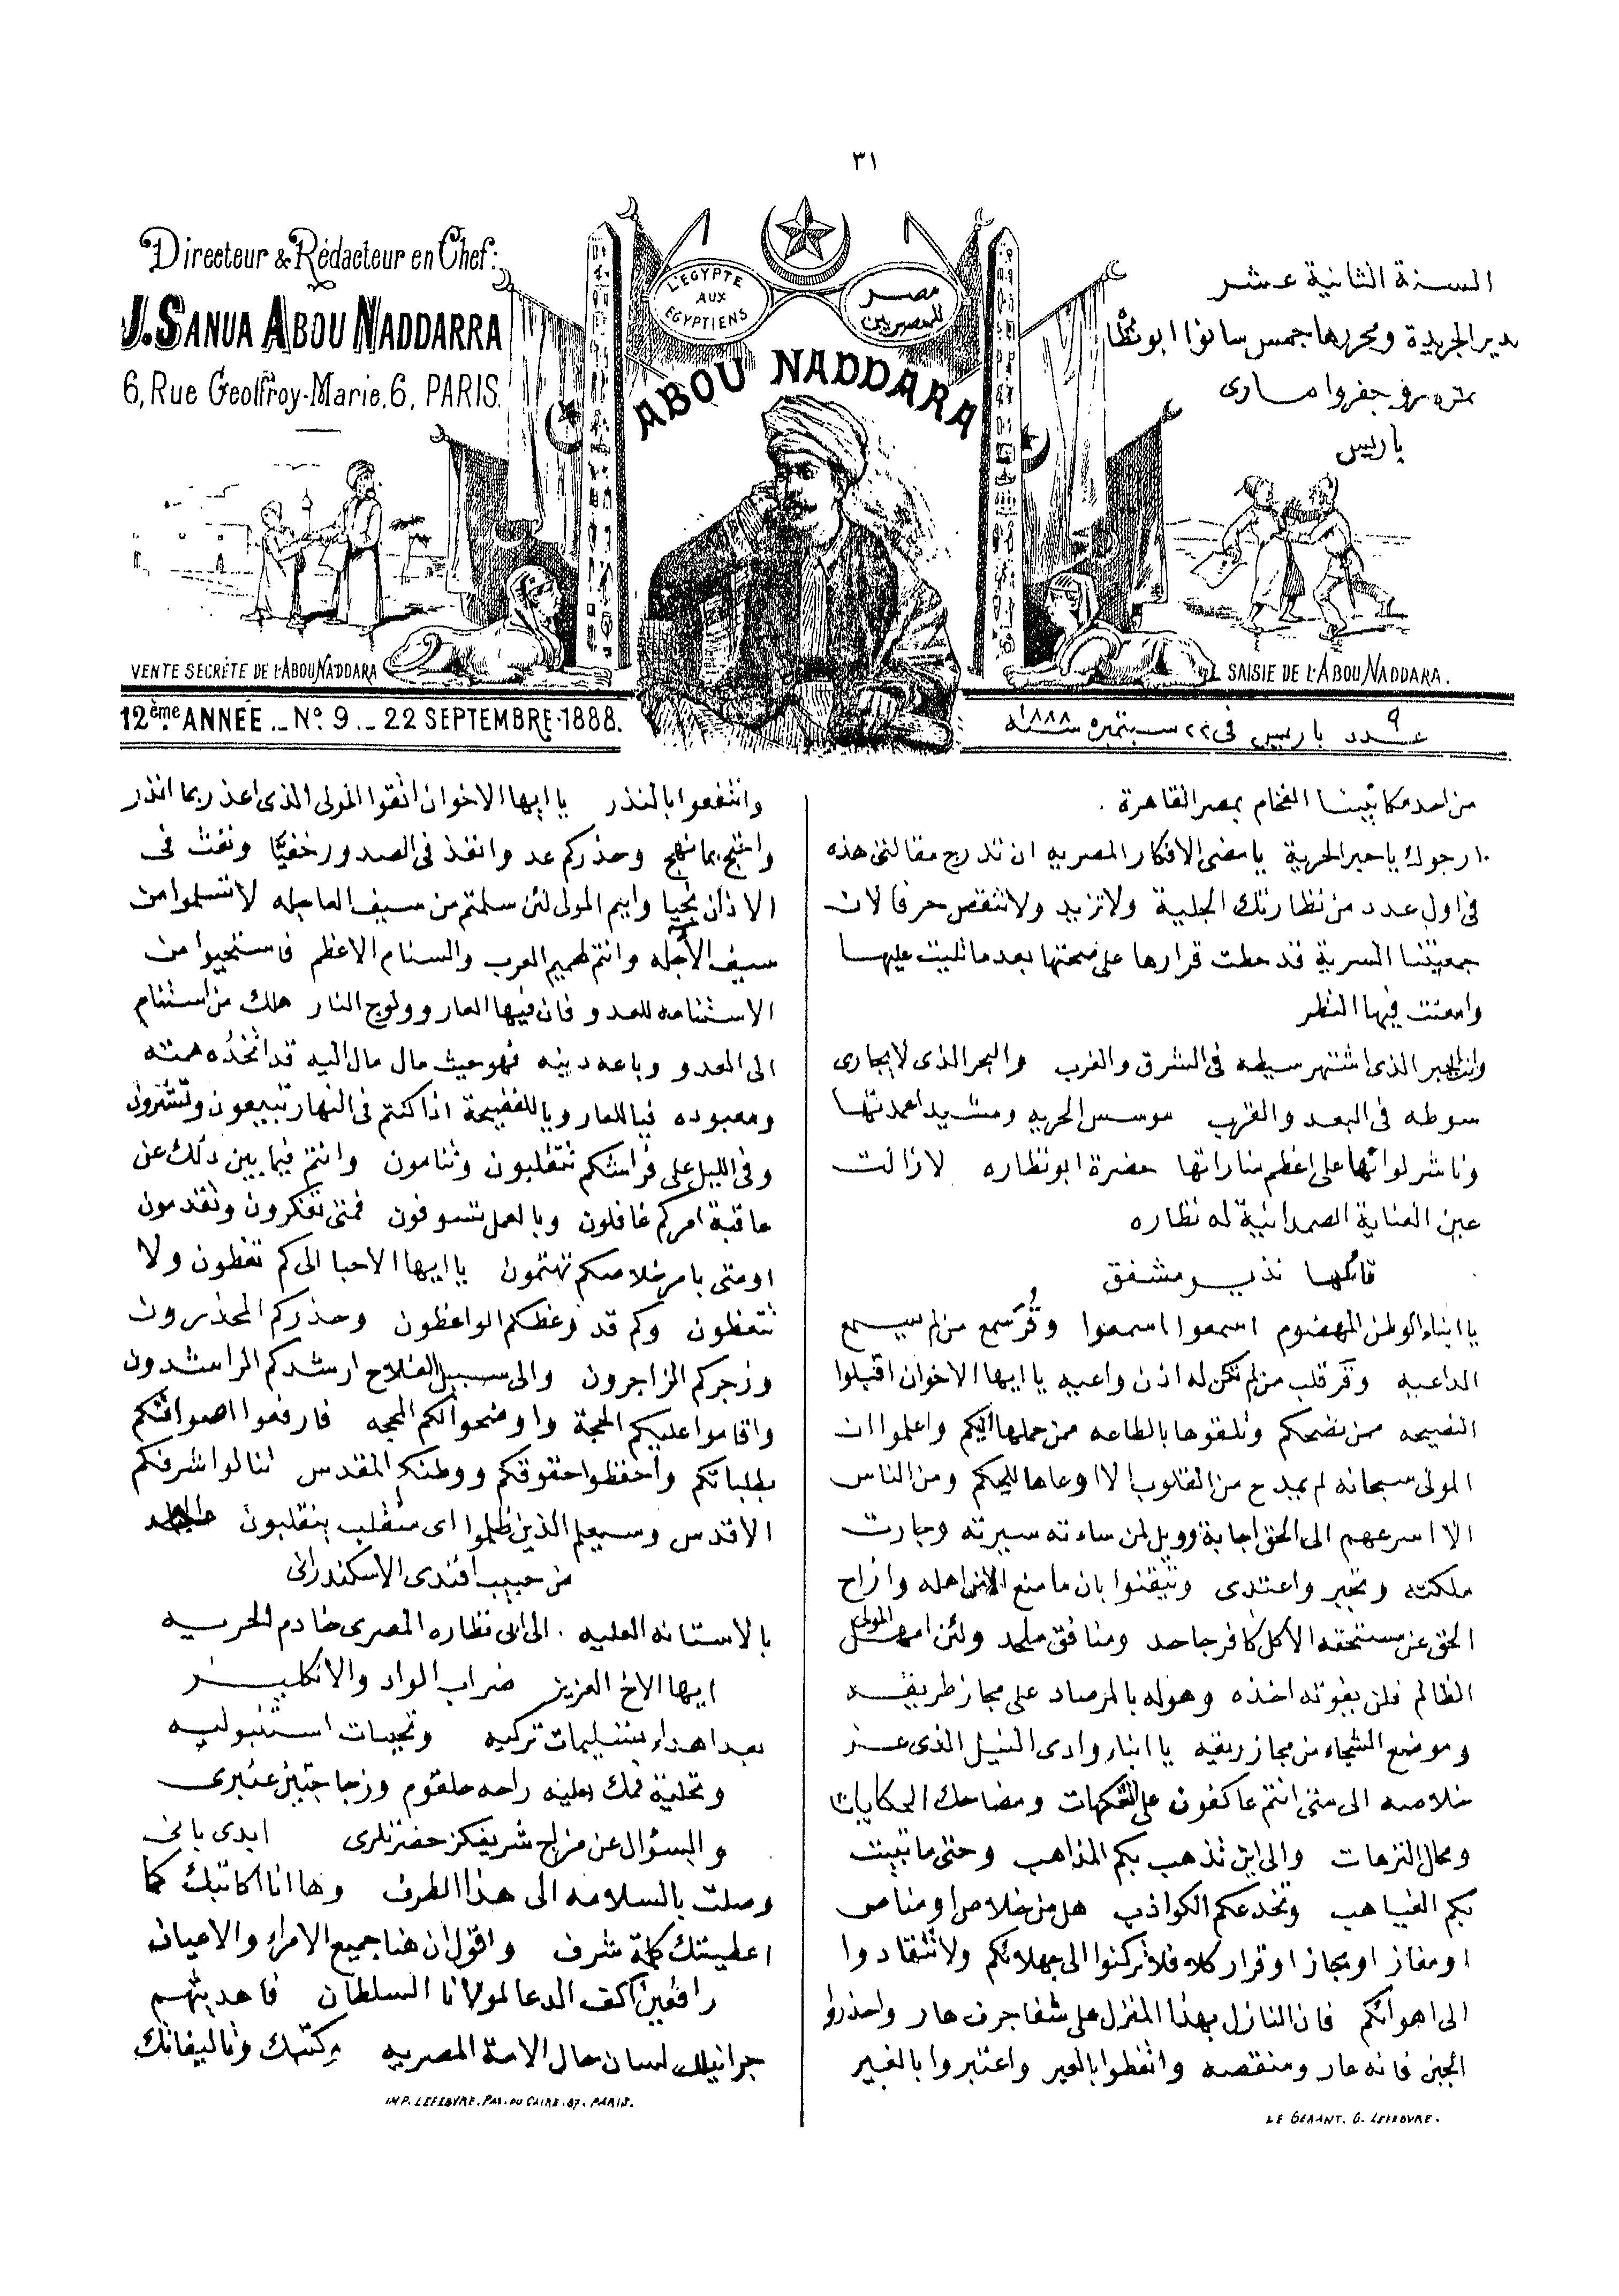 ٣١
Directeur & Rédacteur en Chef:
J. SANUA ABOU NADDARRA
6, Rue Geoffroy-Marie, 6, PARIS.
L'EGYPTE
AUX
EGYPTIENS
مصر
للمصريين
ABOU NADDARA
السنة الثانية عشر
مدير الجريدة ومحررها جمس سانوا ابو نظا
نمرة ٦ رو جفروا مارى
باريس
VENTE SECRÈTE DE L'ABOU NADDARA
SAISIE DE L'ABOU NADDARA.
12ème ANNÉE _ No. 9 _ 22 SEPTEMBRE 1888.
عدد ٩ باريس فى ٢٢ سبتمبره سنة ١٨٨٨
من احد مكاتبينا الفخام بمصر القاهرة .
ارجوك يا حبر الحرية يا مضى الافكار المصريه ان تدرج مقالتى هذه
فى اول عدد من نظارتك الجلية ولا تزيد ولا تنقص حرفا لان
جمعيتنا السرية قد حطت قرارها على صحتها بعد ما تليت عليها
وامعنت فيها النظر
وانت الحبر الذى اشتهر سيطه فى الشرق والغرب والبحر الذى لا يجارى
سوطه فى البعد والقرب موسس الحريه ومشيد اعمدتها
وناشر لوائها على اعظم مناراتها حضرة ابو نظاره لا زالت
عين العناية الصمدانية له نظاره
قائلها نذير مشفق
يا ابناء الوطن المهضوم اسمعوا اسمعوا وقر سمع من لم يسمع
الداعيه وقر قلب من لم تكن له اذن واعيه يا ايها الاخوان اقبلوا
النصيحه ممن نصحكم وتلقوها بالطاعه ممن حملها اليكم واعلموا ان
المولى سبحانه لم يمدح من القلوب الا اوعاها للحكم ومن الناس
الا اسرعهم الى الحق اجابة وويل لمن ساءته سيرته وجارت
ملكته وتجبر واعتدى وتيقنوا بان ما منع الامر اهله وازاح
الحق عن مستحقه الا كل كافر جاحد ومنافق ملحد ولئن امهل المولى
الظالم فلن يفوته اخذه وهو له بالمرصاد على مجاز طريقه
وموضع الشجاء من مجاز ريقه يا ابناء وادى النيل الذى عز
خلاصه الى متى انتم عاكفون على الفكهات ومضاحك الحكايات
ومحال النزهات والى اين تذهب بكم المذاهب وحتى ما تتيهت
بكم الغياهب وتخدعكم الكواذب هل من خلاص او مناص
او مفاز او مجاز او قرار كلا فلا تركنوا الى جهلائكم ولا تنقادوا
الى اهوائكم فان النازل بهذا المنزل على شفا جرف هار واحذروا
الجبن فانه عار ومنقصه واتعظوا بالعبر واعتبروا بالغير
LE GÉRANT. G. LEFEBVRE.
وانتفعوا بالنذر يا ايها الاخوان اتقوا المولى الذى اعذر بما انذر
واحتج بما نهج وحذركم عدوا نفذ فى الصدور خفيًا ونفث فى
الاذان نجيا وايم المولى لئن سلمتم من سيف العاجله لا تسلموا من
سيف الآجله وانتم لهميم العرب والسنام الاعظم فاستحيوا من
الاستنامه للعدو فان فيها العار وولوج النار هلك من استنام
الى العدو وباعه دينه فهو حيث مال مال اليه قد اتخذه همته
ومعبوده فيا للعار ويا للفضيحة اذا كنتم فى النهار تبيعون وتشترون
وفى الليل على فراشكم تتقلبون وتنامون وانتم فيما بين ذلك عن
عاقبة امركم غافلون وبالعمل تسوفون فمتى تفكرون وتقدمون
او متى بامر خلاصكم تهتمون يا ايها الاحبا الى كم تعظون ولا
تتعظون وكم قد وعظكم الواعظون وحذركم المحذرون
وزجركم الزاجرون والى سبيل الفلاح ارشدكم المراشدون
واقاموا عليكم الحجة واوضحوا لكم المحجه فارفعوا اصواتكم
بطلباتكم واحفظوا حقوقكم ووطنكم المقدس تنالوا شرفكم
الاقدس وسيعلم الذين ظلموا اى منقلب ينقلبون
من حبيب افندى الاسكندرانى
بالاستانه العليه . الى ابى نظاره المصرى خادم الحريه
ايها الاخ العزيز ضراب الواد والانكليز
بعد اهداء تسليمات تركيه وتحيات استنبوليه
وتحلية فمك بعلبة راحه حلقوم وزجاجتين عنبرى
والسؤال عن مزاج شريفكز حضرتلرى ايدى يا اخى
وصلت بالسلامه الى هذا الطرف وها انا اكاتبك كما
اعطيتك كلمة شرف واقول ان هنا جميع الامراء والاعيان
رافعين اكف الدعا لمولانا السلطان فاهديتهم
جرانيلك لسان حال الامة المصريه وكتبك وتاليفاتك
IMP. LEFEBVRE. PAS. DU CAIRE. 87. PARIS.